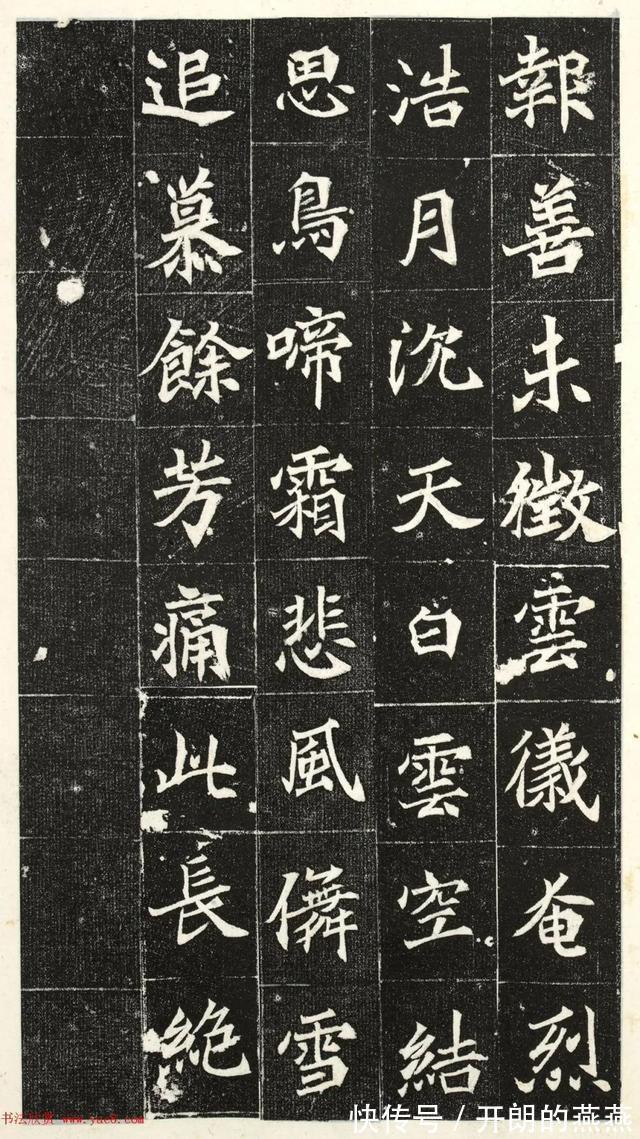 報善未徵雲儀奄烈
浩月沉天白雲空結
思鳥啼霜悲風儛雪
追慕餘芳痛此長絶
书法欣赏 www.yac8.com
快传号 / 开朗的燕燕